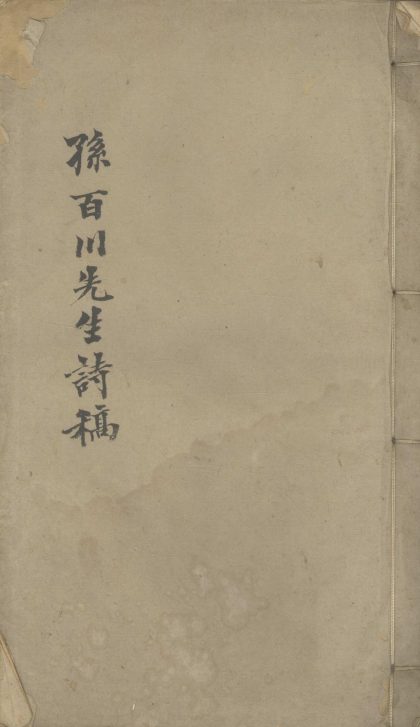 孫百川先生詩稿